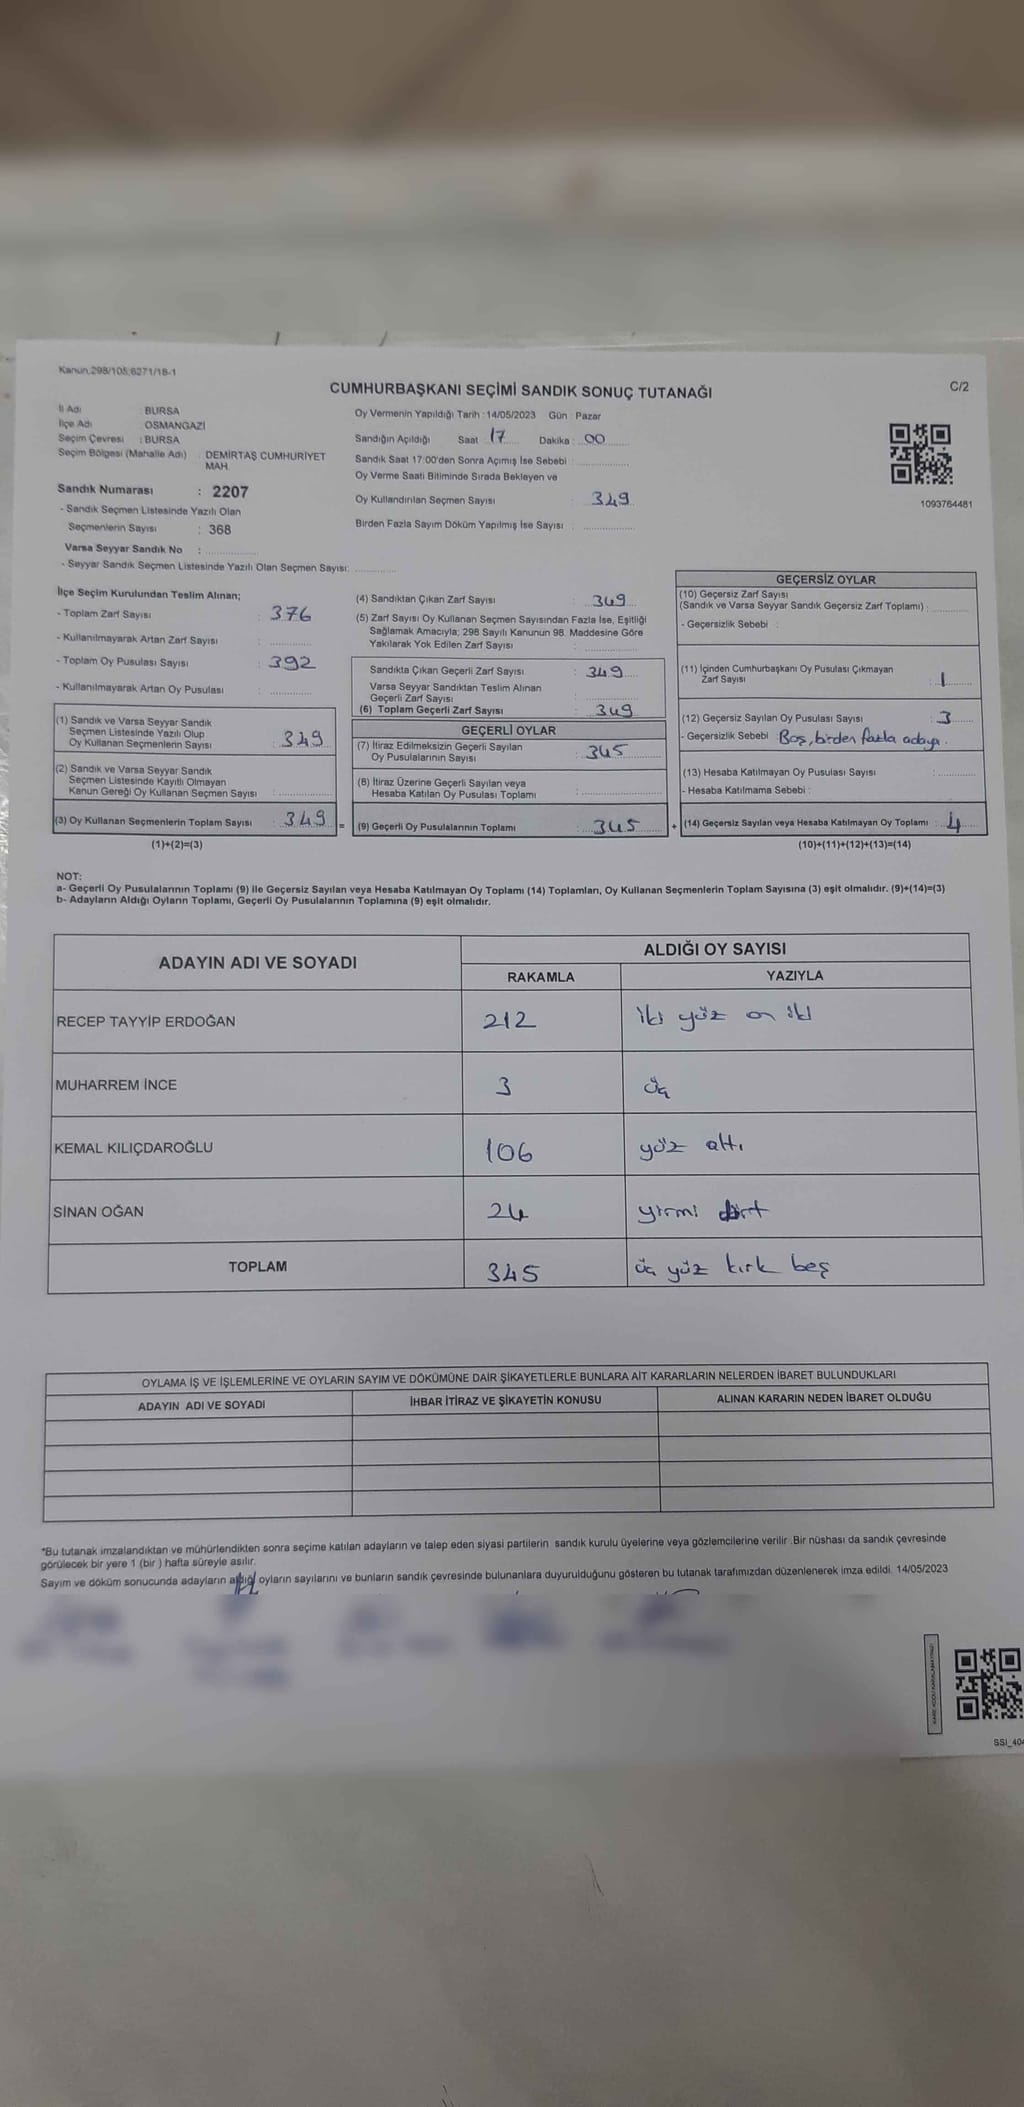 Kanun.298/105;6271/18-1
CUMHURBAŞKANI SEÇİMİ SANDIK SONUÇ TUTANAĞI
C/2
İl Adı : BURSA
İlçe Adı : OSMANGAZİ
Seçim Çevresi : BURSA
Seçim Bölgesi (Mahalle Adı) : DEMİRTAŞ CUMHURİYET
MAH.
Sandık Numarası : 2207
- Sandık Seçmen Listesinde Yazılı Olan
Seçmenlerin Sayısı : 368
Varsa Seyyar Sandık No :
- Seyyar Sandık Seçmen Listesinde Yazılı Olan Seçmen Sayısı:
Oy Vermenin Yapıldığı Tarih : 14/05/2023 Gün : Pazar
Sandığın Açıldığı Saat : 17 Dakika : 00
Sandık Saat 17:00'den Sonra Açımış İse Sebebi :
Oy Verme Saati Bitiminde Sırada Bekleyen ve
Oy Kullandırılan Seçmen Sayısı : 349
Birden Fazla Sayım Döküm Yapılmış İse Sayısı :
1093764481
İlçe Seçim Kurulundan Teslim Alınan;
- Toplam Zarf Sayısı : 376
- Kullanılmayarak Artan Zarf Sayısı :
- Toplam Oy Pusulası Sayısı : 392
- Kullanılmayarak Artan Oy Pusulası :
(1) Sandık ve Varsa Seyyar Sandık
Seçmen Listesinde Yazılı Olup
Oy Kullanan Seçmenlerin Sayısı : 349
(2) Sandık ve Varsa Seyyar Sandık
Seçmen Listesinde Kayıtlı Olmayan
Kanun Gereği Oy Kullanan Seçmen Sayısı :
(3) Oy Kullanan Seçmenlerin Toplam Sayısı : 349 =
(1)+(2)=(3)
(4) Sandıktan Çıkan Zarf Sayısı : 349
(5) Zarf Sayısı Oy Kullanan Seçmen Sayısından Fazla İse, Eşitliği
Sağlamak Amacıyla; 298 Sayılı Kanunun 98. Maddesine Göre
Yakılarak Yok Edilen Zarf Sayısı :
Sandıkta Çıkan Geçerli Zarf Sayısı : 349
Varsa Seyyar Sandıktan Teslim Alınan
Geçerli Zarf Sayısı :
(6) Toplam Geçerli Zarf Sayısı : 349
GEÇERLİ OYLAR
(7) İtiraz Edilmeksizin Geçerli Sayılan
Oy Pusulalarının Sayısı : 345
(8) İtiraz Üzerine Geçerli Sayılan veya
Hesaba Katılan Oy Pusulası Toplamı :
(9) Geçerli Oy Pusulalarının Toplamı : 345 +
GEÇERSİZ OYLAR
(10) Geçersiz Zarf Sayısı
(Sandık ve Varsa Seyyar Sandık Geçersiz Zarf Toplamı) :
- Geçersizlik Sebebi :
(11) İçinden Cumhurbaşkanı Oy Pusulası Çıkmayan
Zarf Sayısı : 1
(12) Geçersiz Sayılan Oy Pusulası Sayısı : 3
- Geçersizlik Sebebi : Boş, birden fazla adaya.
(13) Hesaba Katılmayan Oy Pusulası Sayısı :
- Hesaba Katılmama Sebebi :
(14) Geçersiz Sayılan veya Hesaba Katılmayan Oy Toplamı : 4
(10)+(11)+(12)+(13)=(14)
NOT:
a- Geçerli Oy Pusulalarının Toplamı (9) ile Geçersiz Sayılan veya Hesaba Katılmayan Oy Toplamı (14) Toplamları, Oy Kullanan Seçmenlerin Toplam Sayısına (3) eşit olmalıdır. (9)+(14)=(3)
b- Adayların Aldığı Oyların Toplamı, Geçerli Oy Pusulalarının Toplamına (9) eşit olmalıdır.
ADAYIN ADI VE SOYADI
ALDIĞI OY SAYISI
RAKAMLA YAZIYLA
RECEP TAYYİP ERDOĞAN 212 iki yüz on iki
MUHARREM İNCE 3 üç
KEMAL KILIÇDAROĞLU 106 yüz altı
SİNAN OĞAN 24 yirmi dört
TOPLAM 345 üç yüz kırk beş
OYLAMA İŞ VE İŞLEMLERİNE VE OYLARIN SAYIM VE DÖKÜMÜNE DAİR ŞİKAYETLERLE BUNLARA AİT KARARLARIN NELERDEN İBARET BULUNDUKLARI
ADAYIN ADI VE SOYADI İHBAR İTİRAZ VE ŞİKAYETİN KONUSU ALINAN KARARIN NEDEN İBARET OLDUĞU
*Bu tutanak imzalandıktan ve mühürlendikten sonra seçime katılan adayların ve talep eden siyasi partilerin sandık kurulu üyelerine veya gözlemcilerine verilir .Bir nüshası da sandık çevresinde
görülecek bir yere 1 (bir ) hafta süreyle asılır.
Sayım ve döküm sonucunda adayların aldığı oyların sayılarını ve bunların sandık çevresinde bulunanlara duyurulduğunu gösteren bu tutanak tarafımızdan düzenlenerek imza edildi. 14/05/2023